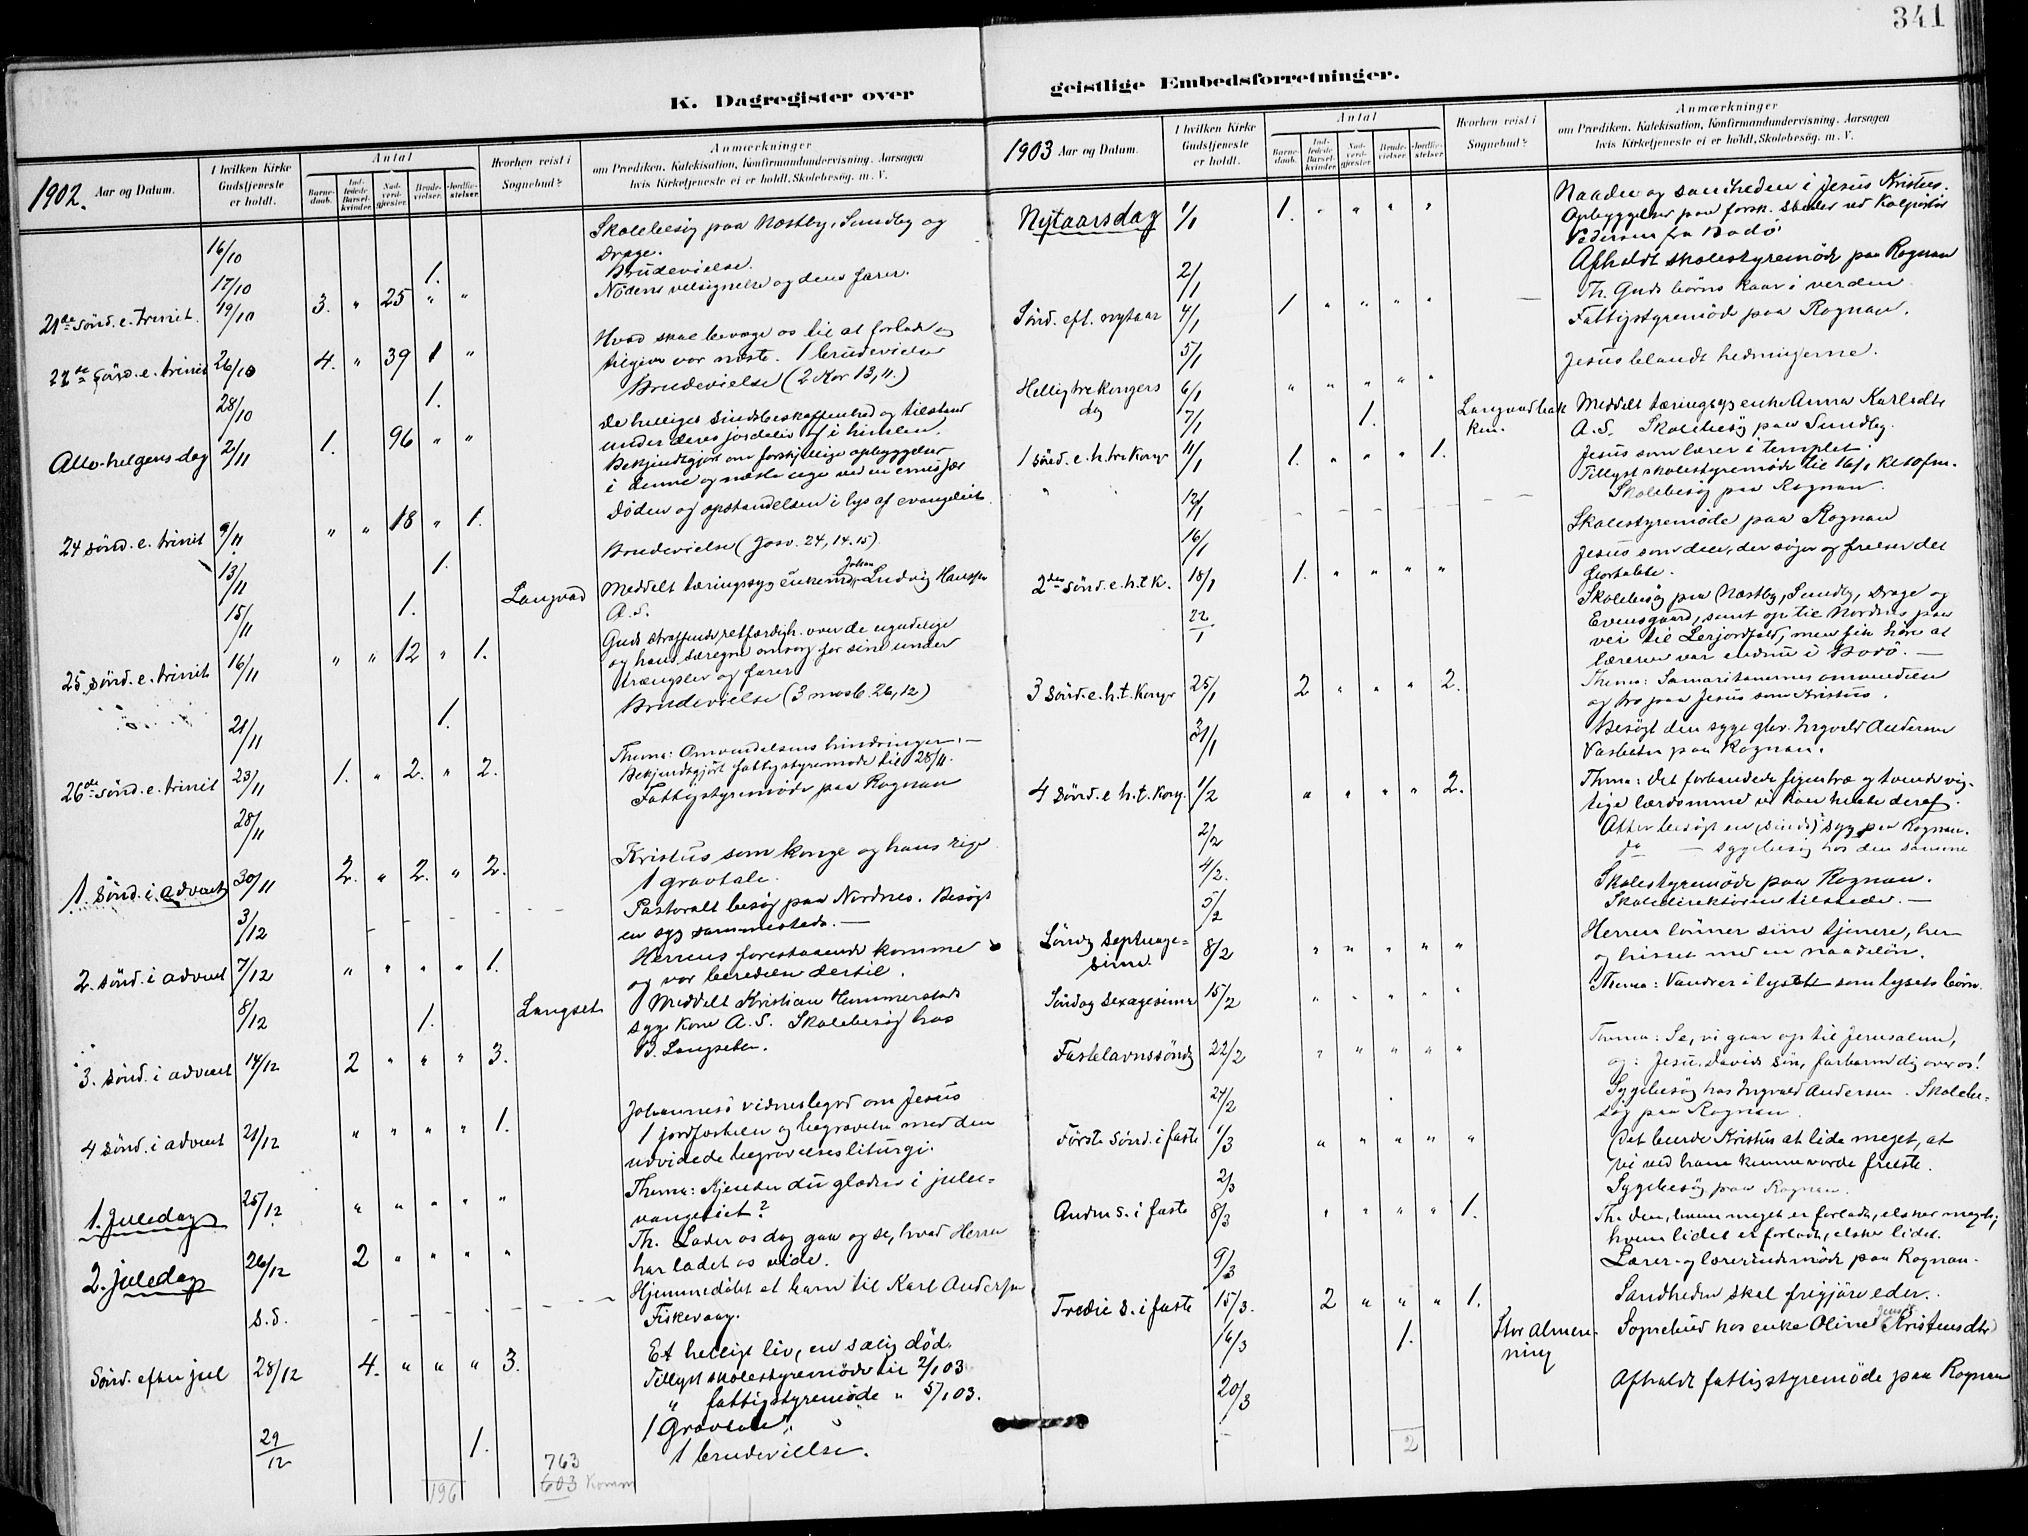 341
K. Dagregister over
geistlige Embedsforretninger.
1902. Aar og Datum.
I hvilken Kirke Gudstjeneste er holdt.
Antal
Barnedaab.
Indledede Barselkvinder.
Nadverdgjester.
Brudevielser.
Jordfæstelser.
Hvorhen reist i Sognebud?
Anmærkninger
om Prædiken, Katekisation, Konfirmandundervisning, Aarsagen
hvis Kirketjeneste ei er holdt, Skolebesøg. m. V.
16/10 Skolebesøg paa Næstby, Sundby og
Drage.
17/10 1. Brudevielse.
21de sønd. e. trinit. 19/10 3. " 25 " " Nødens velsignelse og dens farer.
22de sønd. e. trinit 26/10 4. " 39 1 " Hvad skal bevæge os til at forlade og
tilgive vor næste. 1 brudevielse
28/10 1. Brudevielse (2 Kor 13, 11.)
Alle-helgens dag 2/11 1. 96 " " De helliges sindsbeskaffenhed og tilstand
under deres jordeliv og i himlen.
Bekjendtgjort om forskjellige opbyggelser
i denne og næste uge ved en emissær
24 sønd. e. trinit 9/11 " " 18 " 1. Døden og opstandelsen i lys af evangeliet.
13/11 1. Brudevielse (Josv. 24, 14. 15).
15/11 1. Langvad Meddelt tæringssyg enkemd. Johan Ludvig Hanssen
A. S.
25 sønd. e. trinit 16/11 " " 12 " 1. Guds straffende retfærdigh. over de ugudelige
og hans særegne omsorg for sine under
trængsler og farer
21/11 1. Brudevielse (3 moseb. 26, 12)
26de sønd. e. trinit 23/11 1. " 2. " 2. Thema: Omvendelsens hindringer. —
Bekjendtgjort fattigstyremøde til 28/11.
28/11 Fattigstyremøde paa Rognan
1. Sønd. i advent 30/11 2. " 2. " 2. Kristus som konge og hans rige
1 gravtale.
3/12 Pastoralt besøg paa Nordnes. Besøgt
en syg sammesteds. —
2. sønd. i advent 7/12 " " " " 1. Herrens forestaaende komme
og vor beredelse dertil.
8/12 1. Langset Meddelt Kristian Hammerstads
syge kone A. S. Skolebesøg hos
B. Langseten.
3. sønd. i advent 14/12 2 " " " 3.
4 sønd. i advent 21/12 " " " " 1. Johannes's vidnesbyrd om Jesus
1 jordfæstelse og begravelse med den
udvidede begravelsesliturgi.
1. Juledag 25/12 " " " " " Thema: Kjender du glæden i jule-
vangeliet?
2. juledag 26/12 2 " " " " Th. Lader os dog gaa og se, hvad Herren
har ladet os vide.
S. D. Hjemmedøbt et barn til Karl Andersen
Fiskevaag.
Sønd. efter jul 28/12 4. " " " 3. Et helligt liv, en salig død.
Tillyst skolestyremøde til 2/1 03
" fattigstyremøde " 5/1 03.
1 Gravtale.
29/12 1. 1 brudevielse.
196
763
603 Komm
1903 Aar og Datum.
I hvilken Kirke Gudstjeneste er holdt.
Antal
Barnedaab.
Indledede Barselkvinder.
Nadverdgjester.
Brudevielser.
Jordfæstelser.
Hvorhen reist i Sognebud?
Anmærkninger
om Prædiken, Katekisation, Konfirmandundervisning, Aarsagen
hvis Kirketjeneste ei er holdt, Skolebesøg. m. V.
Nytaarsdag 1/1 1. " " " " Naaden og sandheden i Jesus Kristus.
Opbyggelser paa forsk. steder ved Kolportør
Pedersen fra Bodø
2/1 Afholdt skolestyremøde paa Rognan
Sønd. eft. nytaar 4/1 1 " " " " Th. Guds børns kaar i verden
5/1 Fattigstyremøde paa Rognan.
Hellig tre kongers dag 6/1 " " " " " Jesus blandt hedningerne.
7/1 1. Langvadbakken. Meddelt tæringssyg enke Anna Karlsdtr
A. S. Skolebesøg paa Sundby.
1 sønd. e. h. tre Kong. 11/1 1. " " " 1. Jesus som lærer i templet
Tillyst skolestyremøde til 16/1 kl 10 fm.
12/1 Skolebesøg paa Rognan.
16/1 Skolestyremøde paa Rognan
2den sønd. e. h. t. K. 18/1 1. " " " " Jesus som den, der søger og frelser det
fortabte.
22/1 Skolebesøg paa Næstby, Sundby, Drage og
Evensgaard, samt op til Nordnes paa
vei til Lerjordfald, men fik høre at
læreren var endnu i Bodø. —
3 Sønd. e. h. t. Konger 25/1 2 " " " 2. Thema: Samaritanernes omvendelse
og tro paa Jesus som Kristus.
31/1 Besøgt den syge gbr. Ingvald Andersen
paa Rognan.
4 Sønd. e h. t. Kong. 1/2 " " " " 2. Thema: Det forbandede figentræ og tvende vig-
tige lærdomme vi kan hente deraf.
2/2 Atter besøgt en (sinds) syg paa Rognan.
4/2. do — sygebesøg hos den samme
5/2 Skolestyremøde paa Rognan.
Skoledirektøren tilstede. —
Søndag Septuage-
sima. 8/2 " " " " " Herren lønner sine tjenere, her
og hisset med en naadeløn.
Søndag Sexagesima 15/2 " " " " " Thema: Vandrer i lyset som lysets børn.
Fastelavnssøndag 22/2 " " " " " Thema: Se, vi gaar op til Jerusalem,
og: Jesu, Davids søn, forbarm dig over os!
24/2 Sygebesøg hos Ingvald Andersen. Skolebe-
søg paa Rognan.
Første sønd. i faste 1/3 " " " " " Det burde Kristus at lide meget, at
vi ved ham kunne vorde frelste.
2/3 Sygebesøg paa Rognan.
Anden S. i faste 8/3 " " " " 1. Th. Den, hvem meget er forladt, elsker meget;
hvem lidet er forladt, elsker lidet.
9/3 Lærer- og lærerindemøde paa Rognan.
Tredie S. i faste 15/3. 2 " " " 1. Sandheden skal frigjøre eder.
16/3 1. Stor Almen-
ning Sognebud hos enke Oline Kristensdtr
20/3 Afholdt fattigstyremøde paa Rognan
2